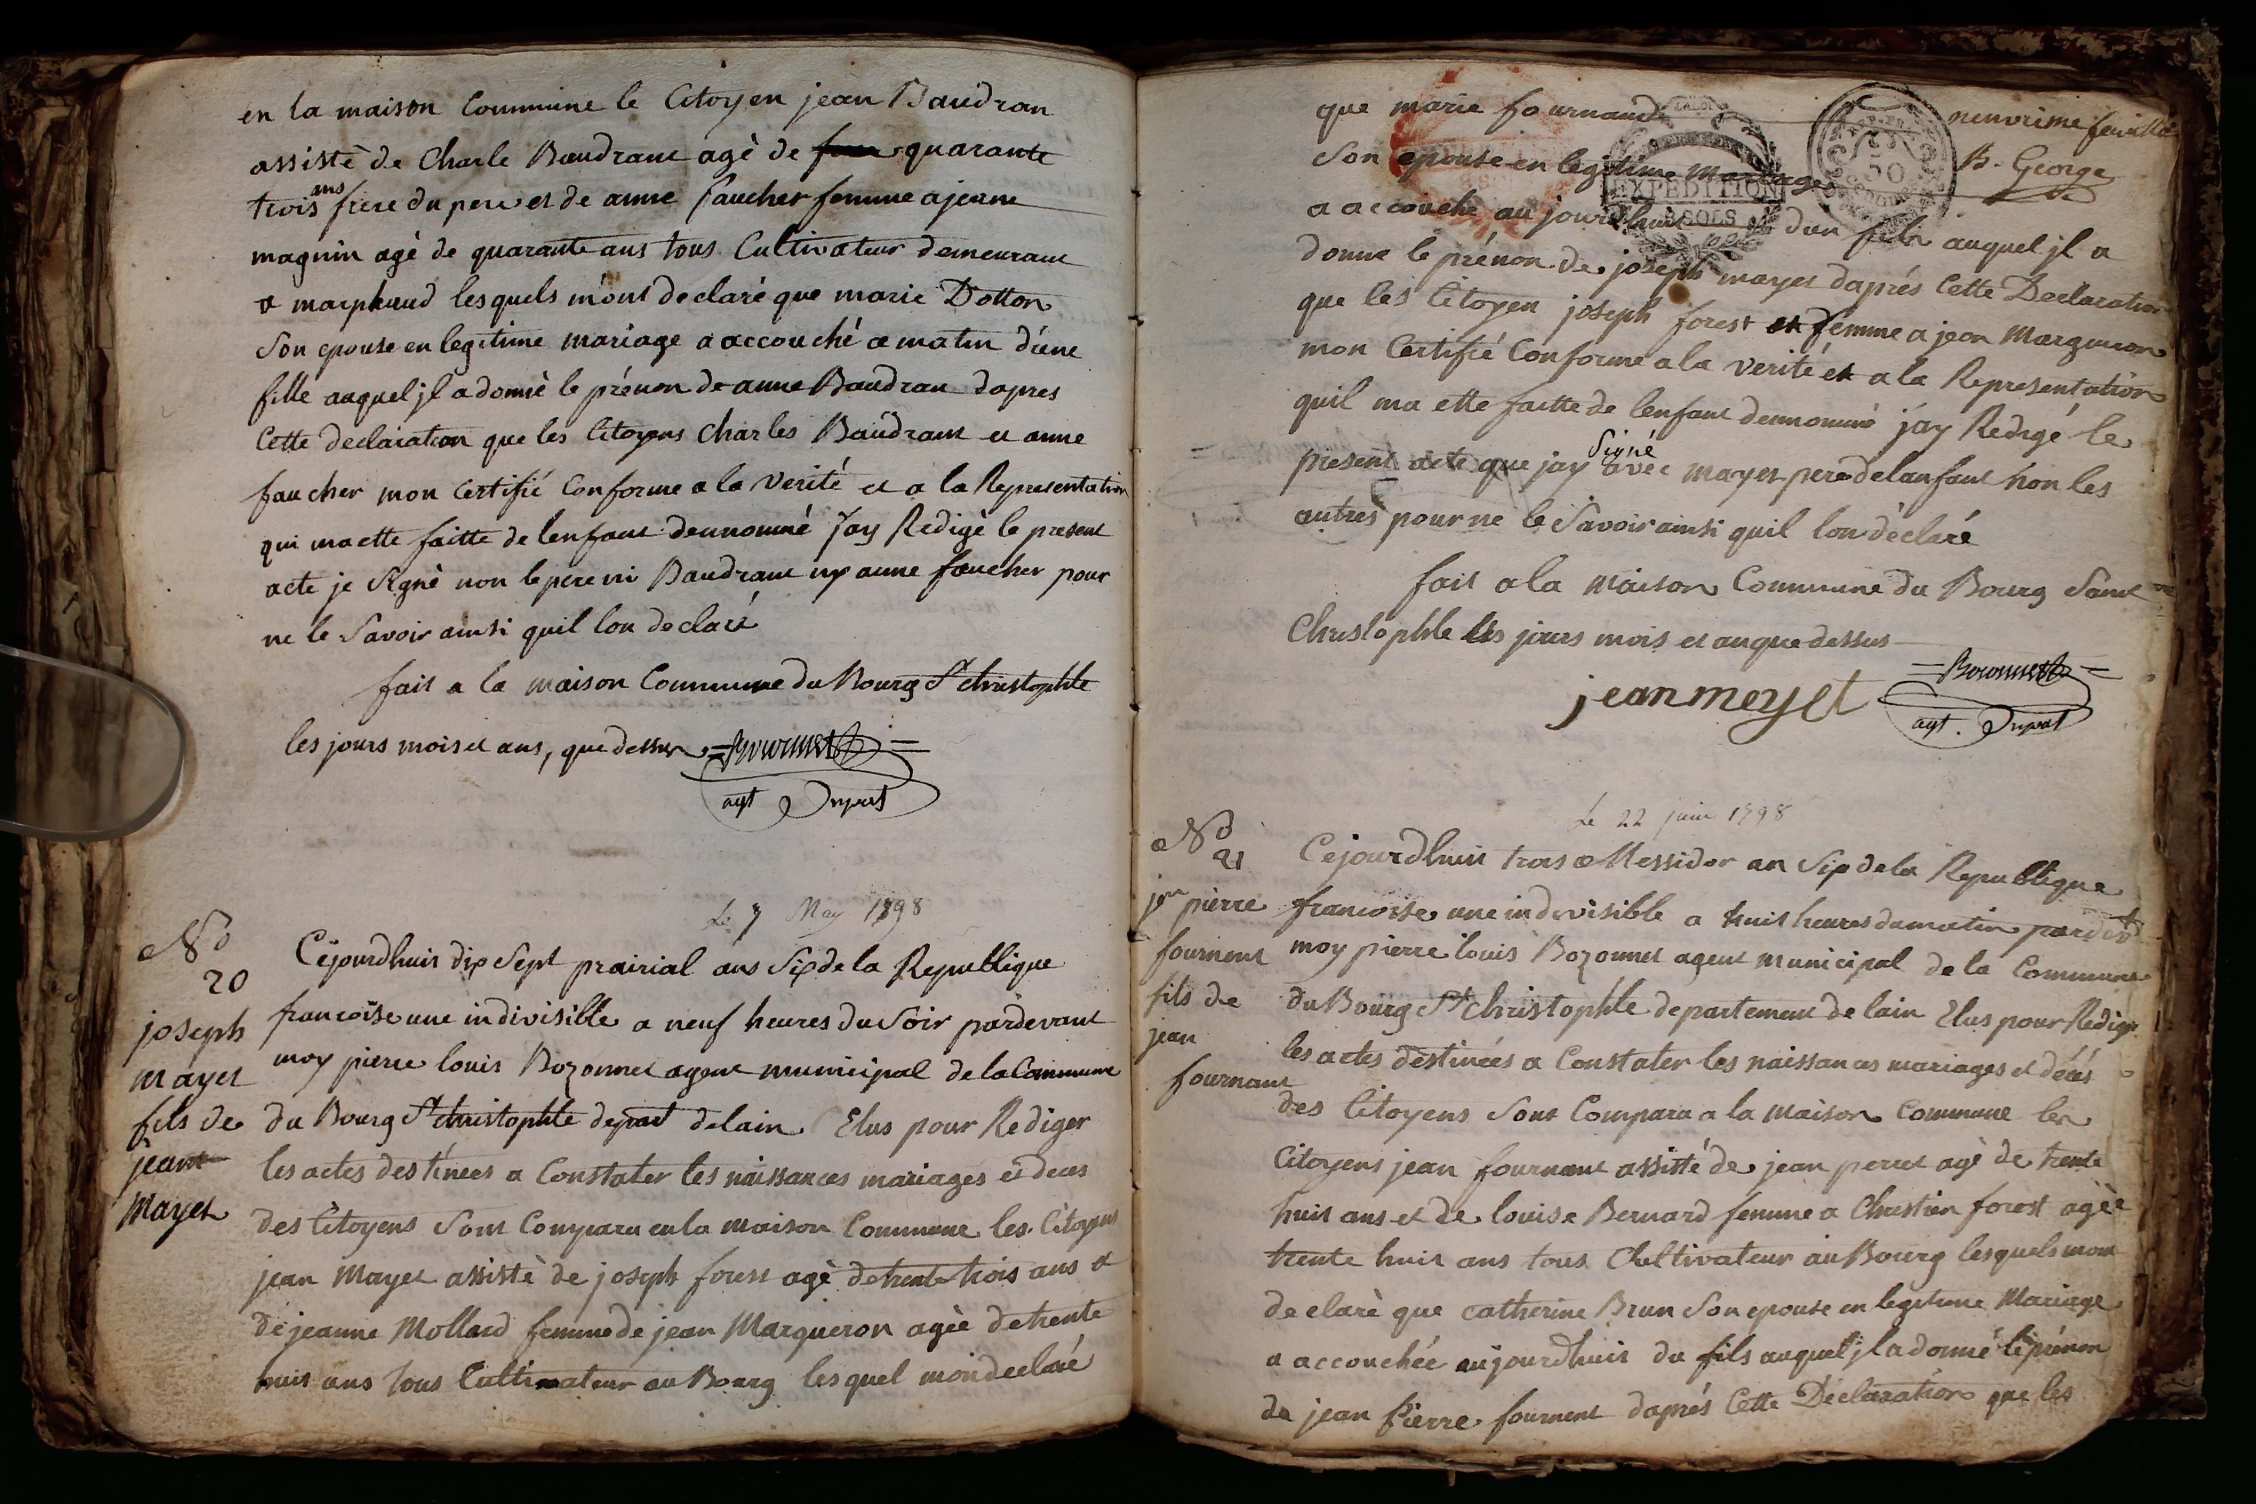 en la maison Commune le Citoyen jean Baudran
assistè de Charle Baudrant agè de quarante
trois ans frere du pere et de anne faucher femme a jeanne
magnin agè de quarante ans tous Cultivateur demeurant
a marphaud lesquels m'ont declaré que marie Dotton
Son epouse en legitime mariage a accouché ce matin d'une
fille auquel jl a donnè le prénon de anne Baudran dapres
Cette declaration que les Citoyens Charles Baudrant et anne
faucher mon Certifié Conforme a la verité et a la Representation
qui ma ette faitte de lenfant dennommé jay Redigè le present
acte je Signè non le pere ni Baudrant ny anne faucher pour
ne le Savoir ainsi quil lon declaré
fait a la maison Commune du Bourg St christophle
les jours mois et ans, que dessus = Bozonnet =
agt Dupart
Le 7 May 1798
No
20
joseph
mayet
fils de
jean
Mayet
Cejourdhuit dix Sept prairial ans Six de la Republique
francoise une indivisible a neuf heures du Soir pardevant
moy pierre louis Bozonnet agent municipal de la Commune
du Bourg St christophle depart delain Elus pour Rediger
les actes destinées a Constater les naissances mariages et deces
des Citoyens Sont Comparu en la maison Commune les Citoyens
jean Mayet assistè de joseph forest agè de trente trois ans et
de jeanne Mollard femme de jean Margueron agèe de trente
huit ans tous Cultivateur au Bourg lesquel mon declaré
que marie fournand
neuvième feuillet
B. George
Son epouse en legitime mariage
EXPEDITION
SOLS
50
a accouché aujourdhuit dun fils auquel jl a
donne le prénon de joseph mayet daprés Cette Declaration
que les Citoyen joseph forest et femme a jean Margueron
mon Certifié Conforme a la verité et a la Representation
quil ma ette faitte de lenfant dennommé jay Redigé le
present acte que jay Signé avec mayet pere de lanfant non les
autres pour ne le Savoir ainsi quil lon déclaré
fait a la maison Commune du Bourg Saint
Christophle les jours mois et an que dessus
= Bozonnet =
jean meyet
agt. Dupart
Le 22 juin 1798
No
21
jean pierre
fournent
fils de
jean
fournant
Cejourdhuit trois Messidor an Six de la Republique
francoise une indivisible a huit heures du matin pardevt
moy pierre louis Bozonnet agent municipal de la Commune
du Bourg St Christophle departement de lain Elus pour Rediger
les actes destinées a Constater les naissances mariages et décés
des Citoyens Sont Comparu a la maison Commune les
Citoyens jean fournant assistè de jean perret agè de trente
huit ans et de louise Bernard femme a Chrestien forest agèe
trente huit ans tous Cultivateur au Bourg lesquels mon
declaré que catherine Brun Son epouse en legitime Mariage
a accouchée aujourdhuit du fils auquel jl a donné le prénon
de jean Pierre fournent daprés Cette Déclaration que les